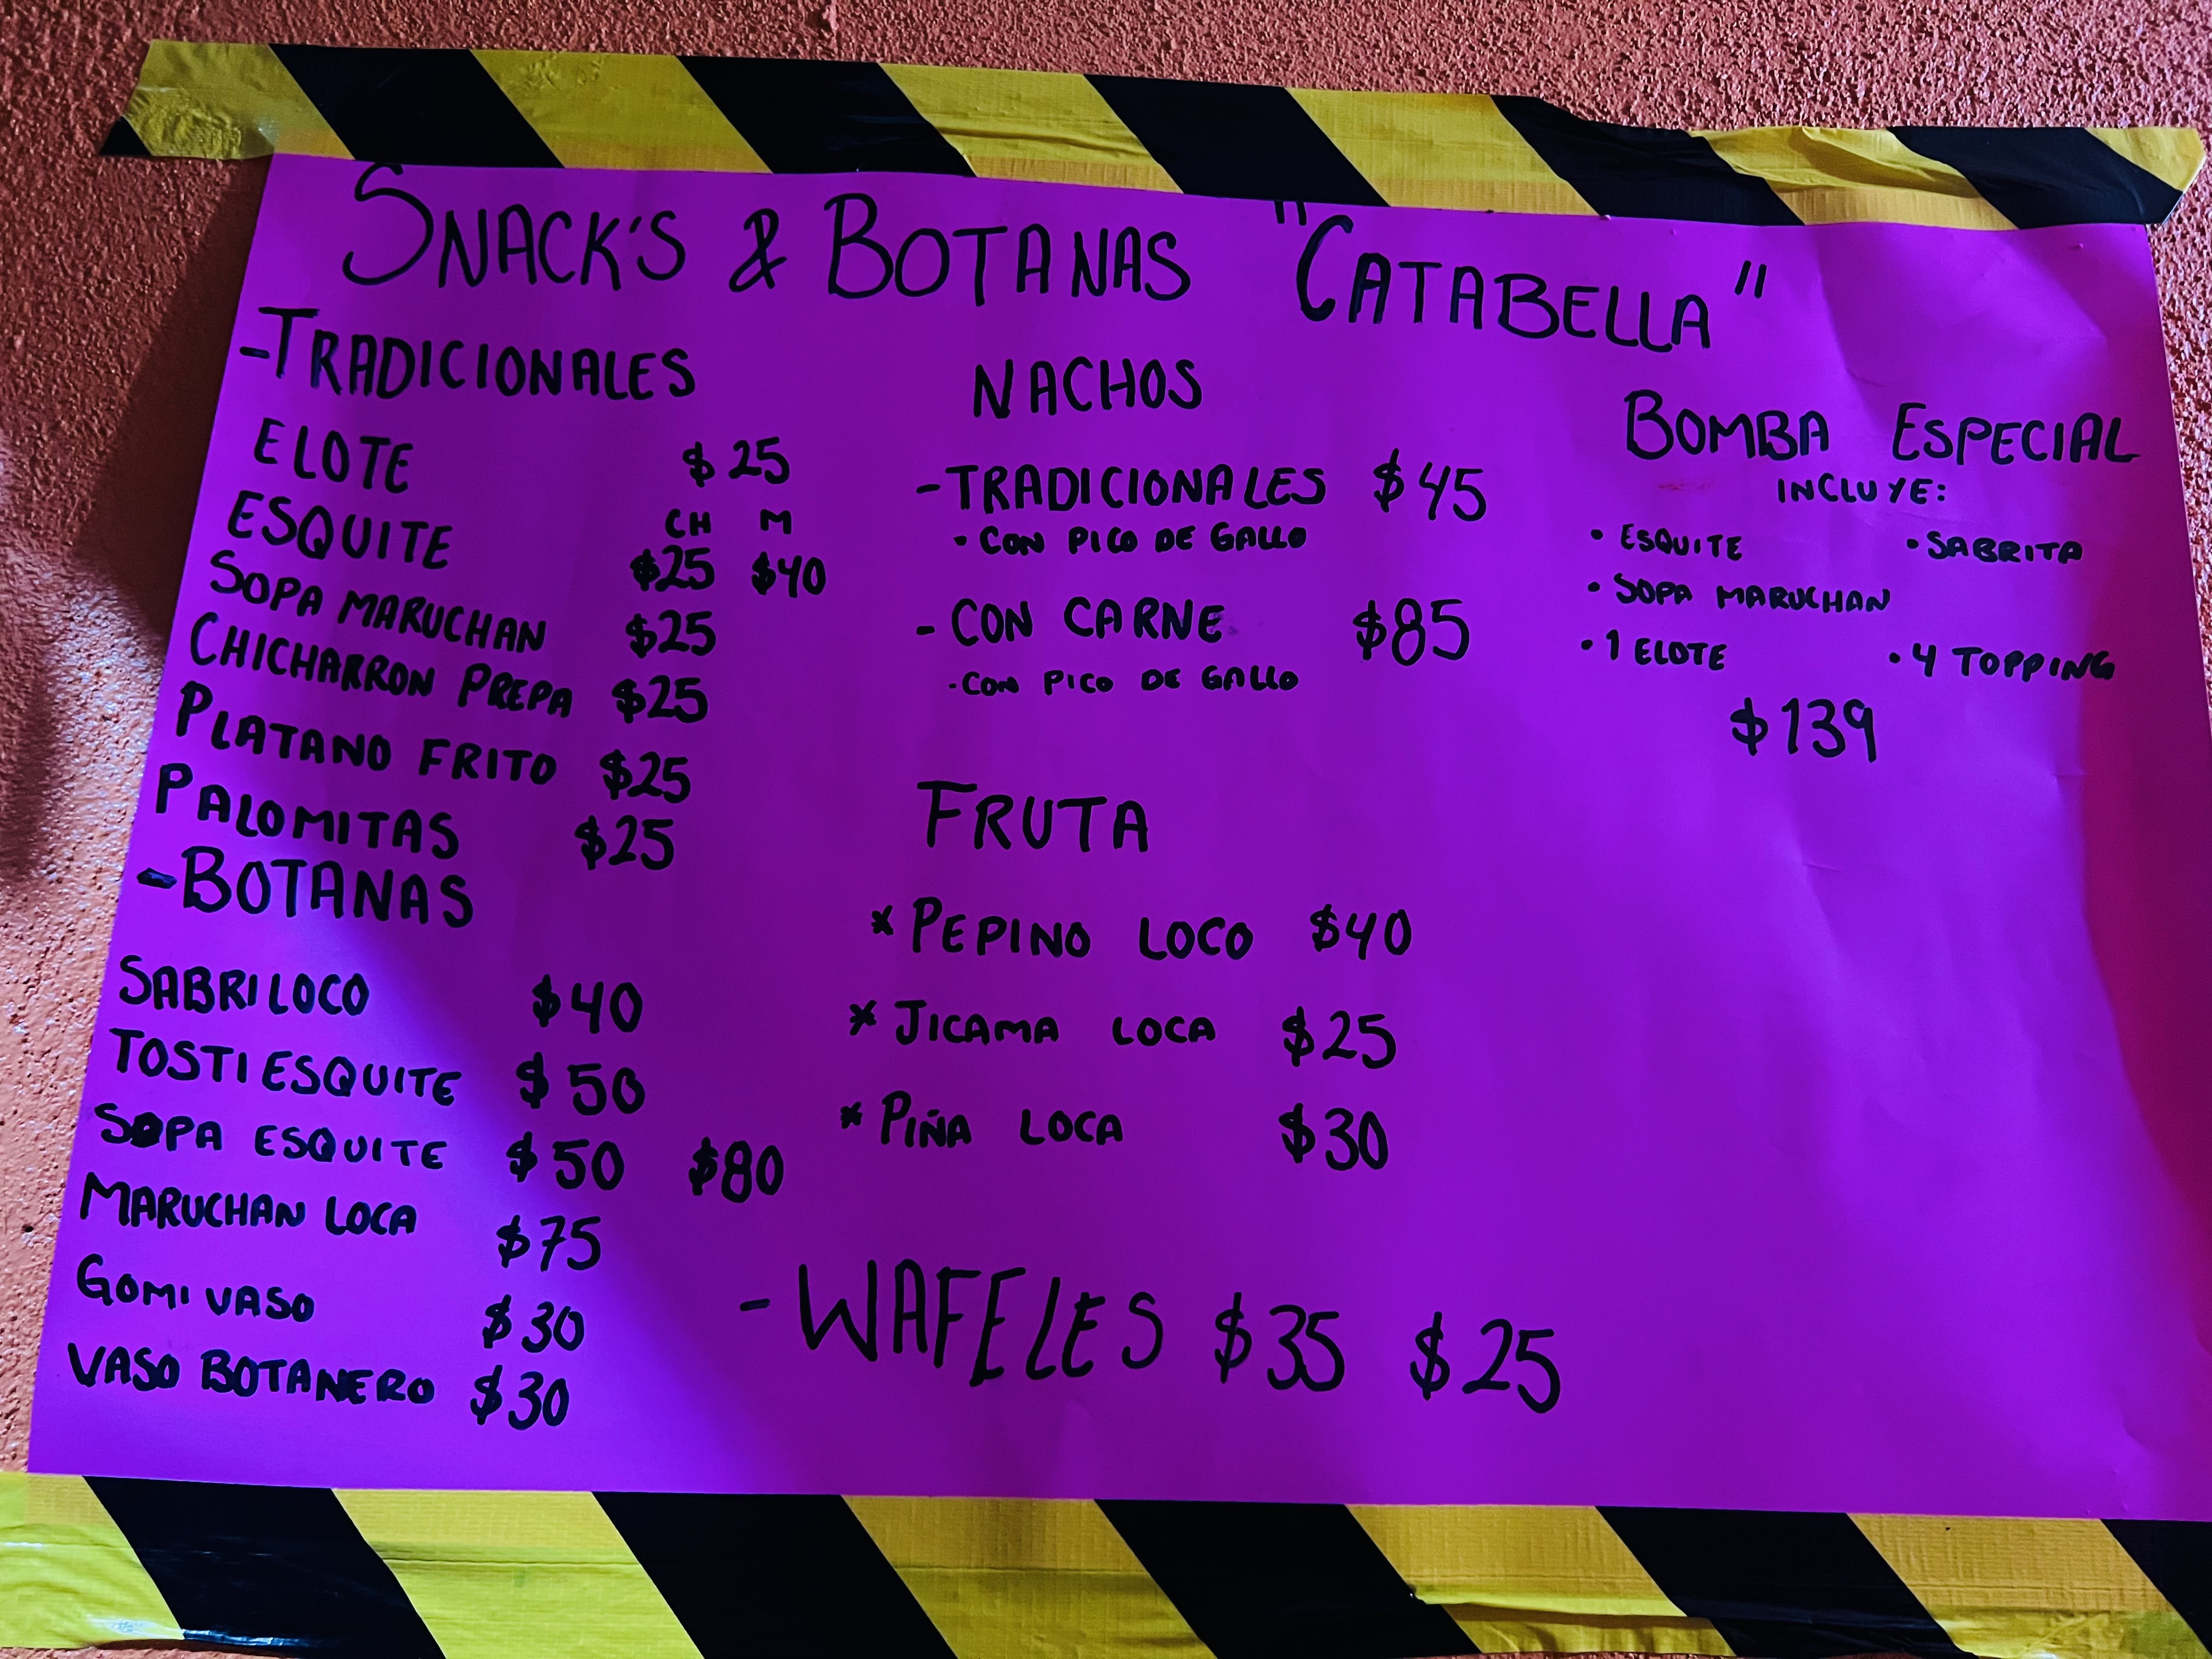 SNACK'S & BOTANAS "CATABELLA"
-TRADICIONALES
ELOTE $25
CH M
ESQUITE $25 $40
SOPA MARUCHAN $25
CHICHARRON PREPA $25
PLATANO FRITO $25
PALOMITAS $25
-BOTANAS
SABRILOCO $40
TOSTIESQUITE $50
SOPA ESQUITE $50 $80
MARUCHAN LOCA $75
GOMIVASO $30
VASO BOTANERO $30
NACHOS
-TRADICIONALES $45
• CON PICO DE GALLO
- CON CARNE $85
-CON PICO DE GALLO
FRUTA
* PEPINO LOCO $40
* JICAMA LOCA $25
* PIÑA LOCA $30
-WAFELES $35 $25
BOMBA ESPECIAL
INCLUYE:
• ESQUITE • SABRITA
• SOPA MARUCHAN
• 1 ELOTE • 4 TOPPING
$139